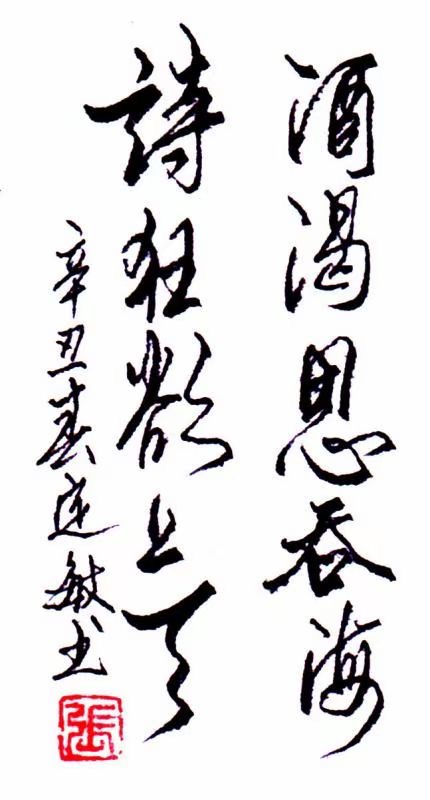 酒渴思吞海
詩狂欲上天
辛丑春廷敏书
張